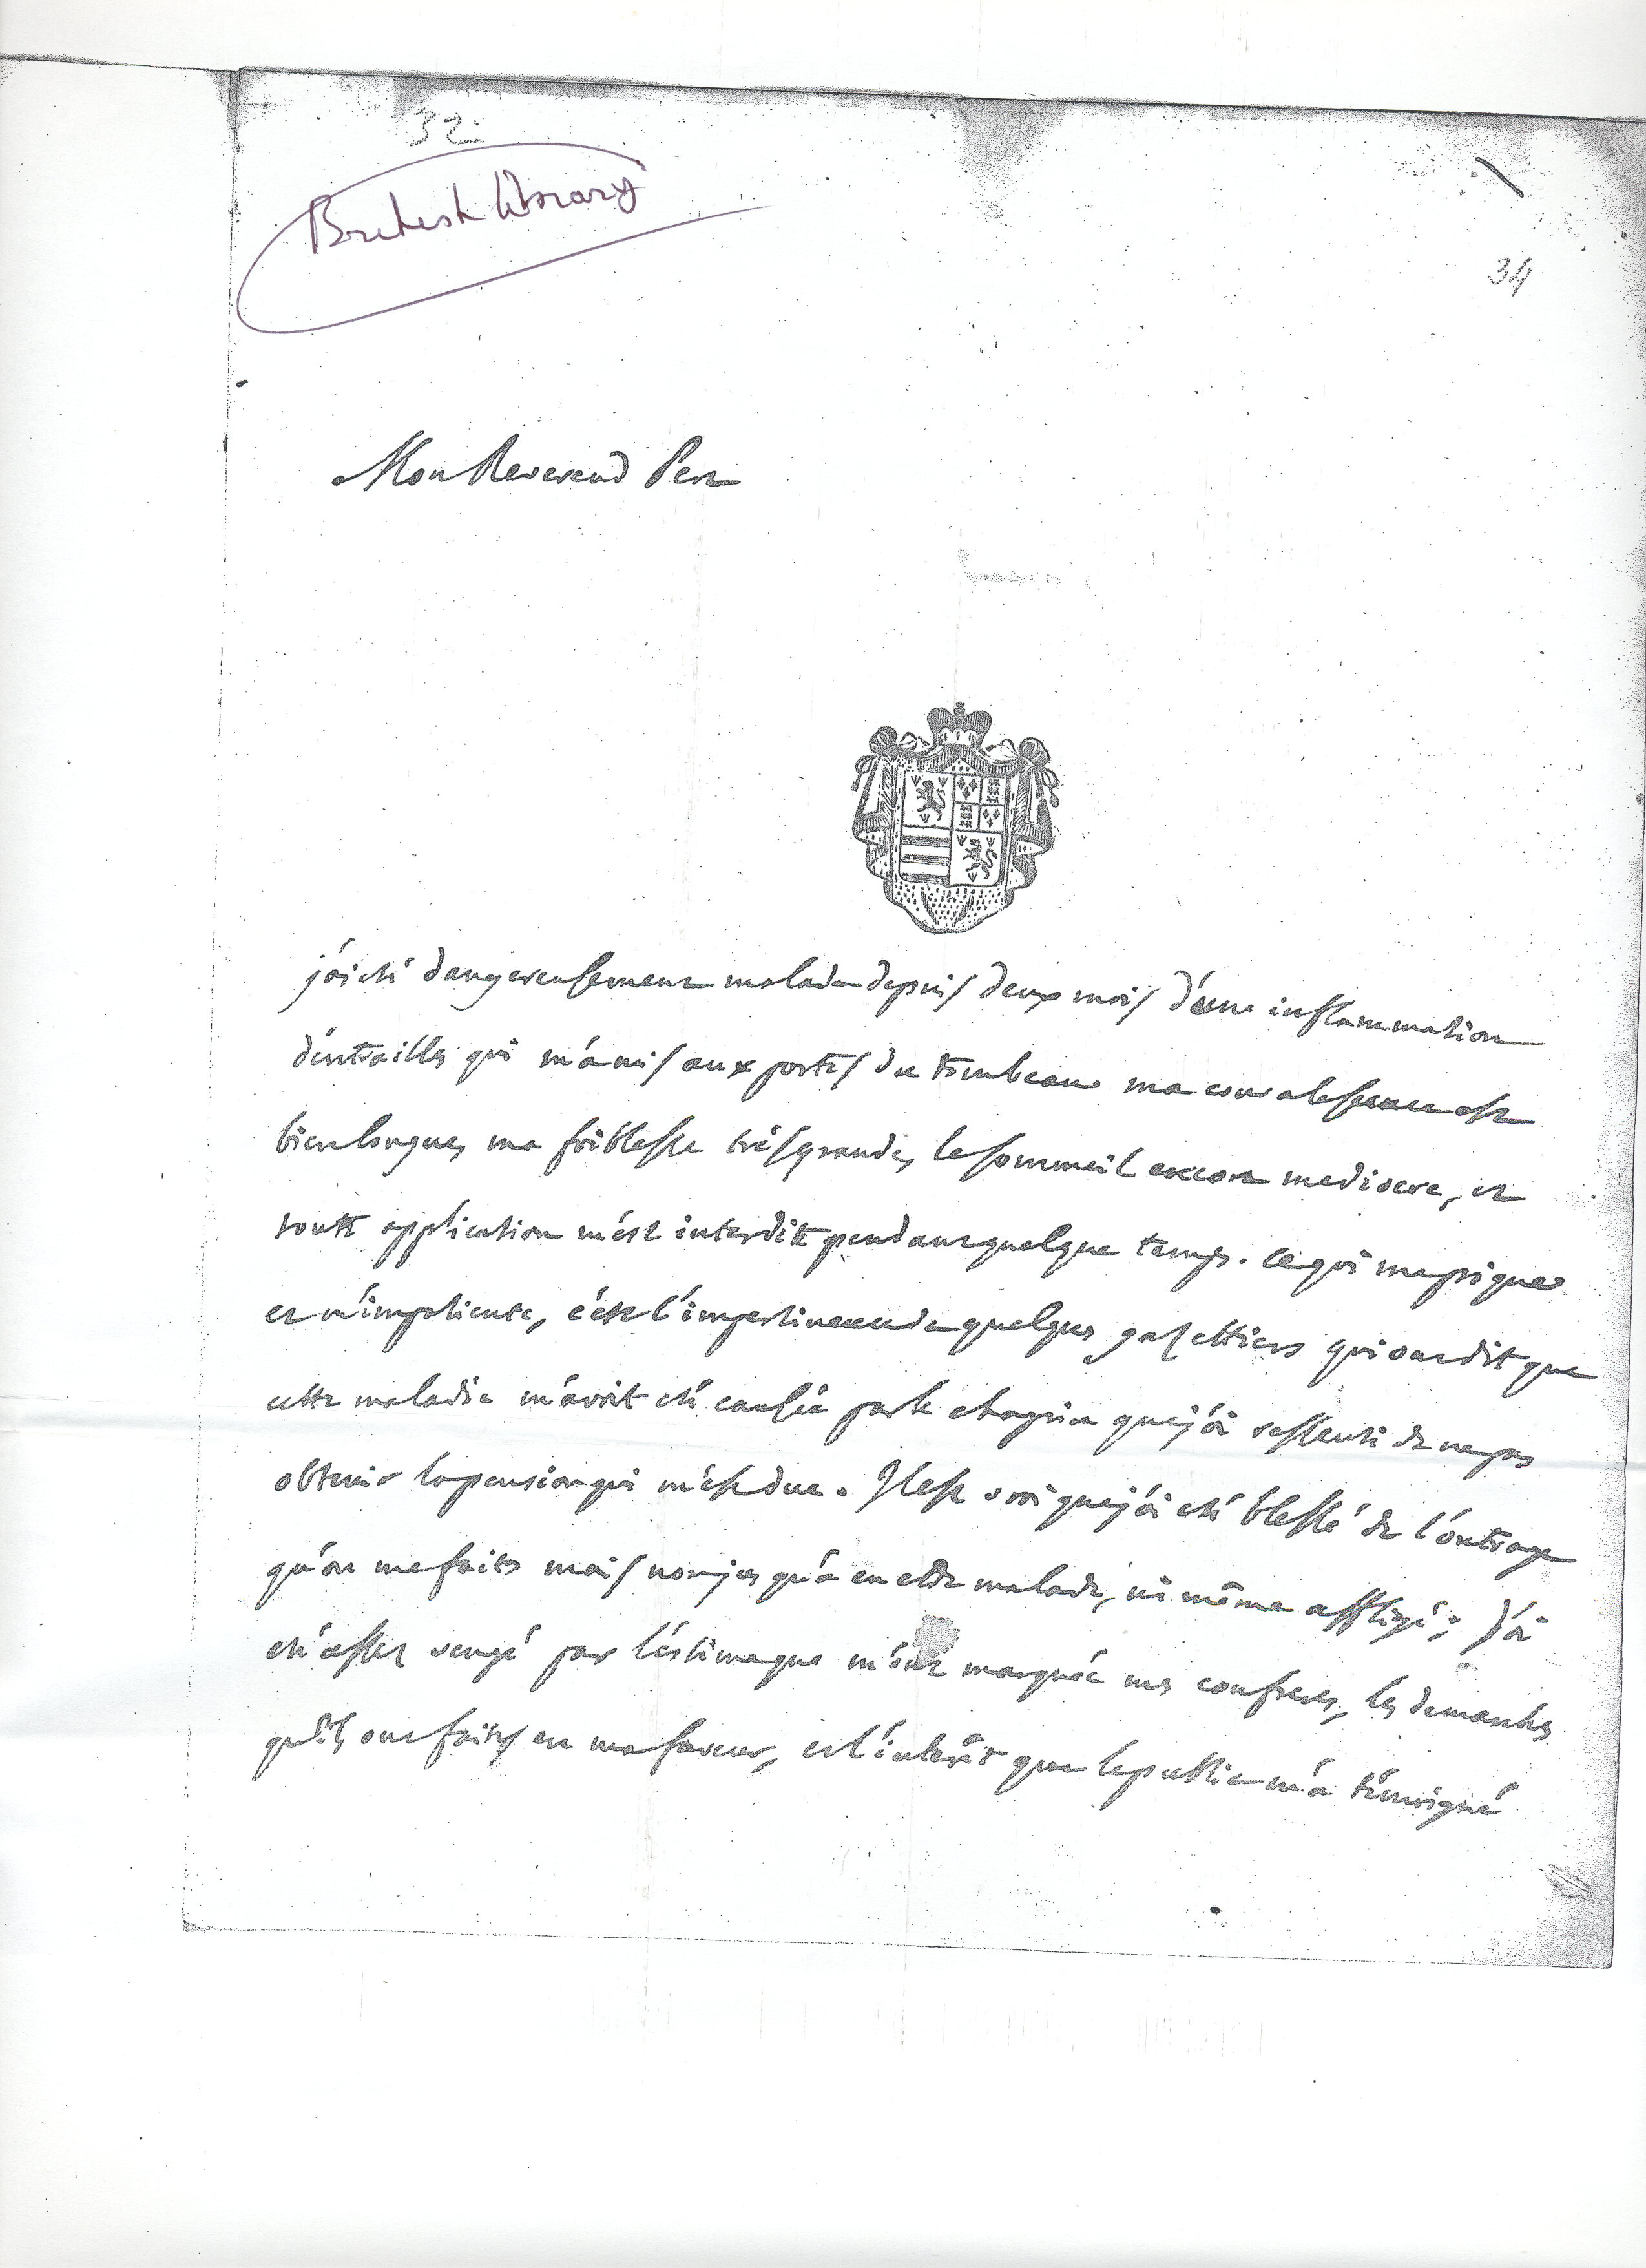 32
British library
34
Mon Reverend Pere
j'ai eté dangereusement malade depuis deux mois d'une inflammation
d'entrailles qui m'a mis aux portes du tombeau ma convalescence est
bien longue, ma foiblesse très grande, le sommeil encore mediocre, et
toute application m'est interdite pendant quelque temps. ce qui me pique
et m'impatiente, c'est l'impertinence de quelques gazettiers qui ont dit que
cette maladie m'avoit eté causée par le chagrin que j'ai ressenti de ne pas
obtenir la pension qui m'est due. Il est vrai que j'ai eté blessé de l'outrage
qu'on me fait, mais non jusqu'à en etre malade, ni même affligé; j'ai
eté assez vengé par l'estime que m'ont marquée mes confreres, les demarches
qu'ils ont faites en ma faveur, et l'intérêt que le public m'a témoigné